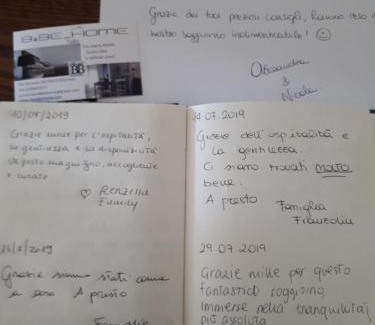 Grazie dei tuoi preziosi consigli, hanno reso il
nostro soggiorno indimenticabile!
Alessandra
&
Nicola
B&BE_HOME
BB
10/07/2019
Grazie mille per l'ospitalità,
la gentilezza e la disponibilità
Un posto magnifico, accogliente
e curato
Renzilla
Family
14.07.2019
Grazie dell'ospitalità e
la gentilezza.
Ci siamo trovati MOLTO
bene.
A presto
Famiglia
/2019
Grazie siamo stati come
a casa A presto
Famiglia
29.07.2019
Grazie mille per questo
fantastico soggiorno,
immerse nella tranquillità
più assoluta